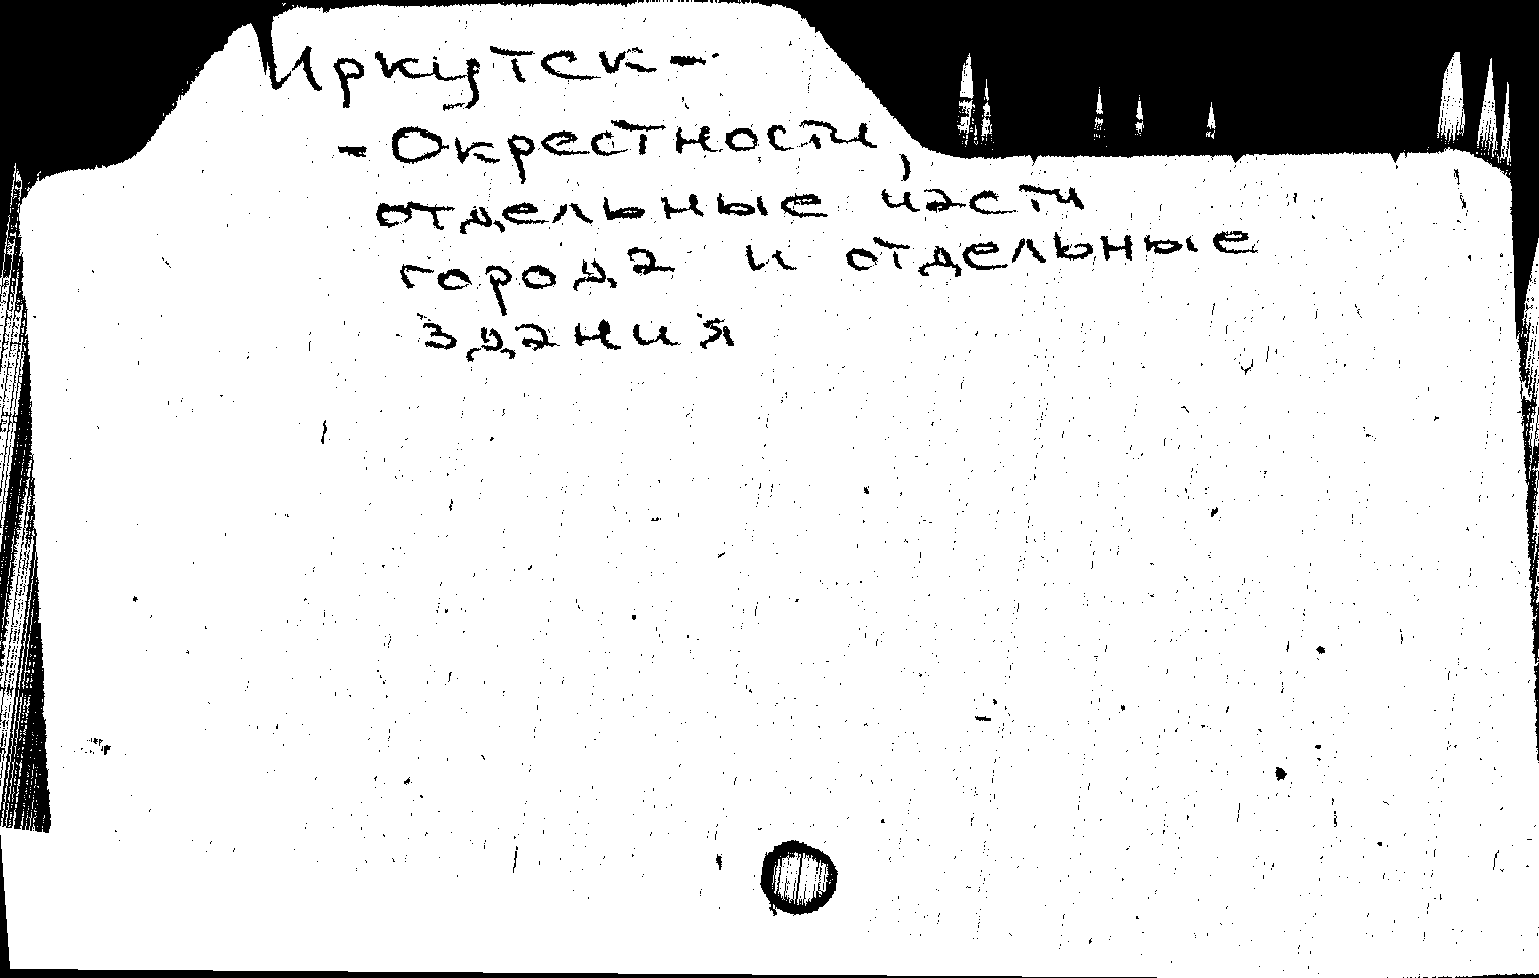 Иркутск -
- Окрестности,
отдельные части
города и отдельные
здания